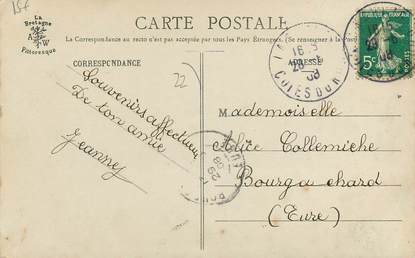 15f
La
Bretagne
A W
Pittoresque
CARTE POSTALE
La Correspondance au recto n'est pas acceptée par tous les Pays Étrangers. (Se renseigner à la Poste)
CORRESPONDANCE
ADRESSE
RÉPUBLIQUE FRANÇAISE
5c
POSTES
CÔTES DU N
22
Souvenirs affectueux
De ton amie
Jeanne
Mademoiselle
Alice Collemiche
Bourgachard
(Eure)